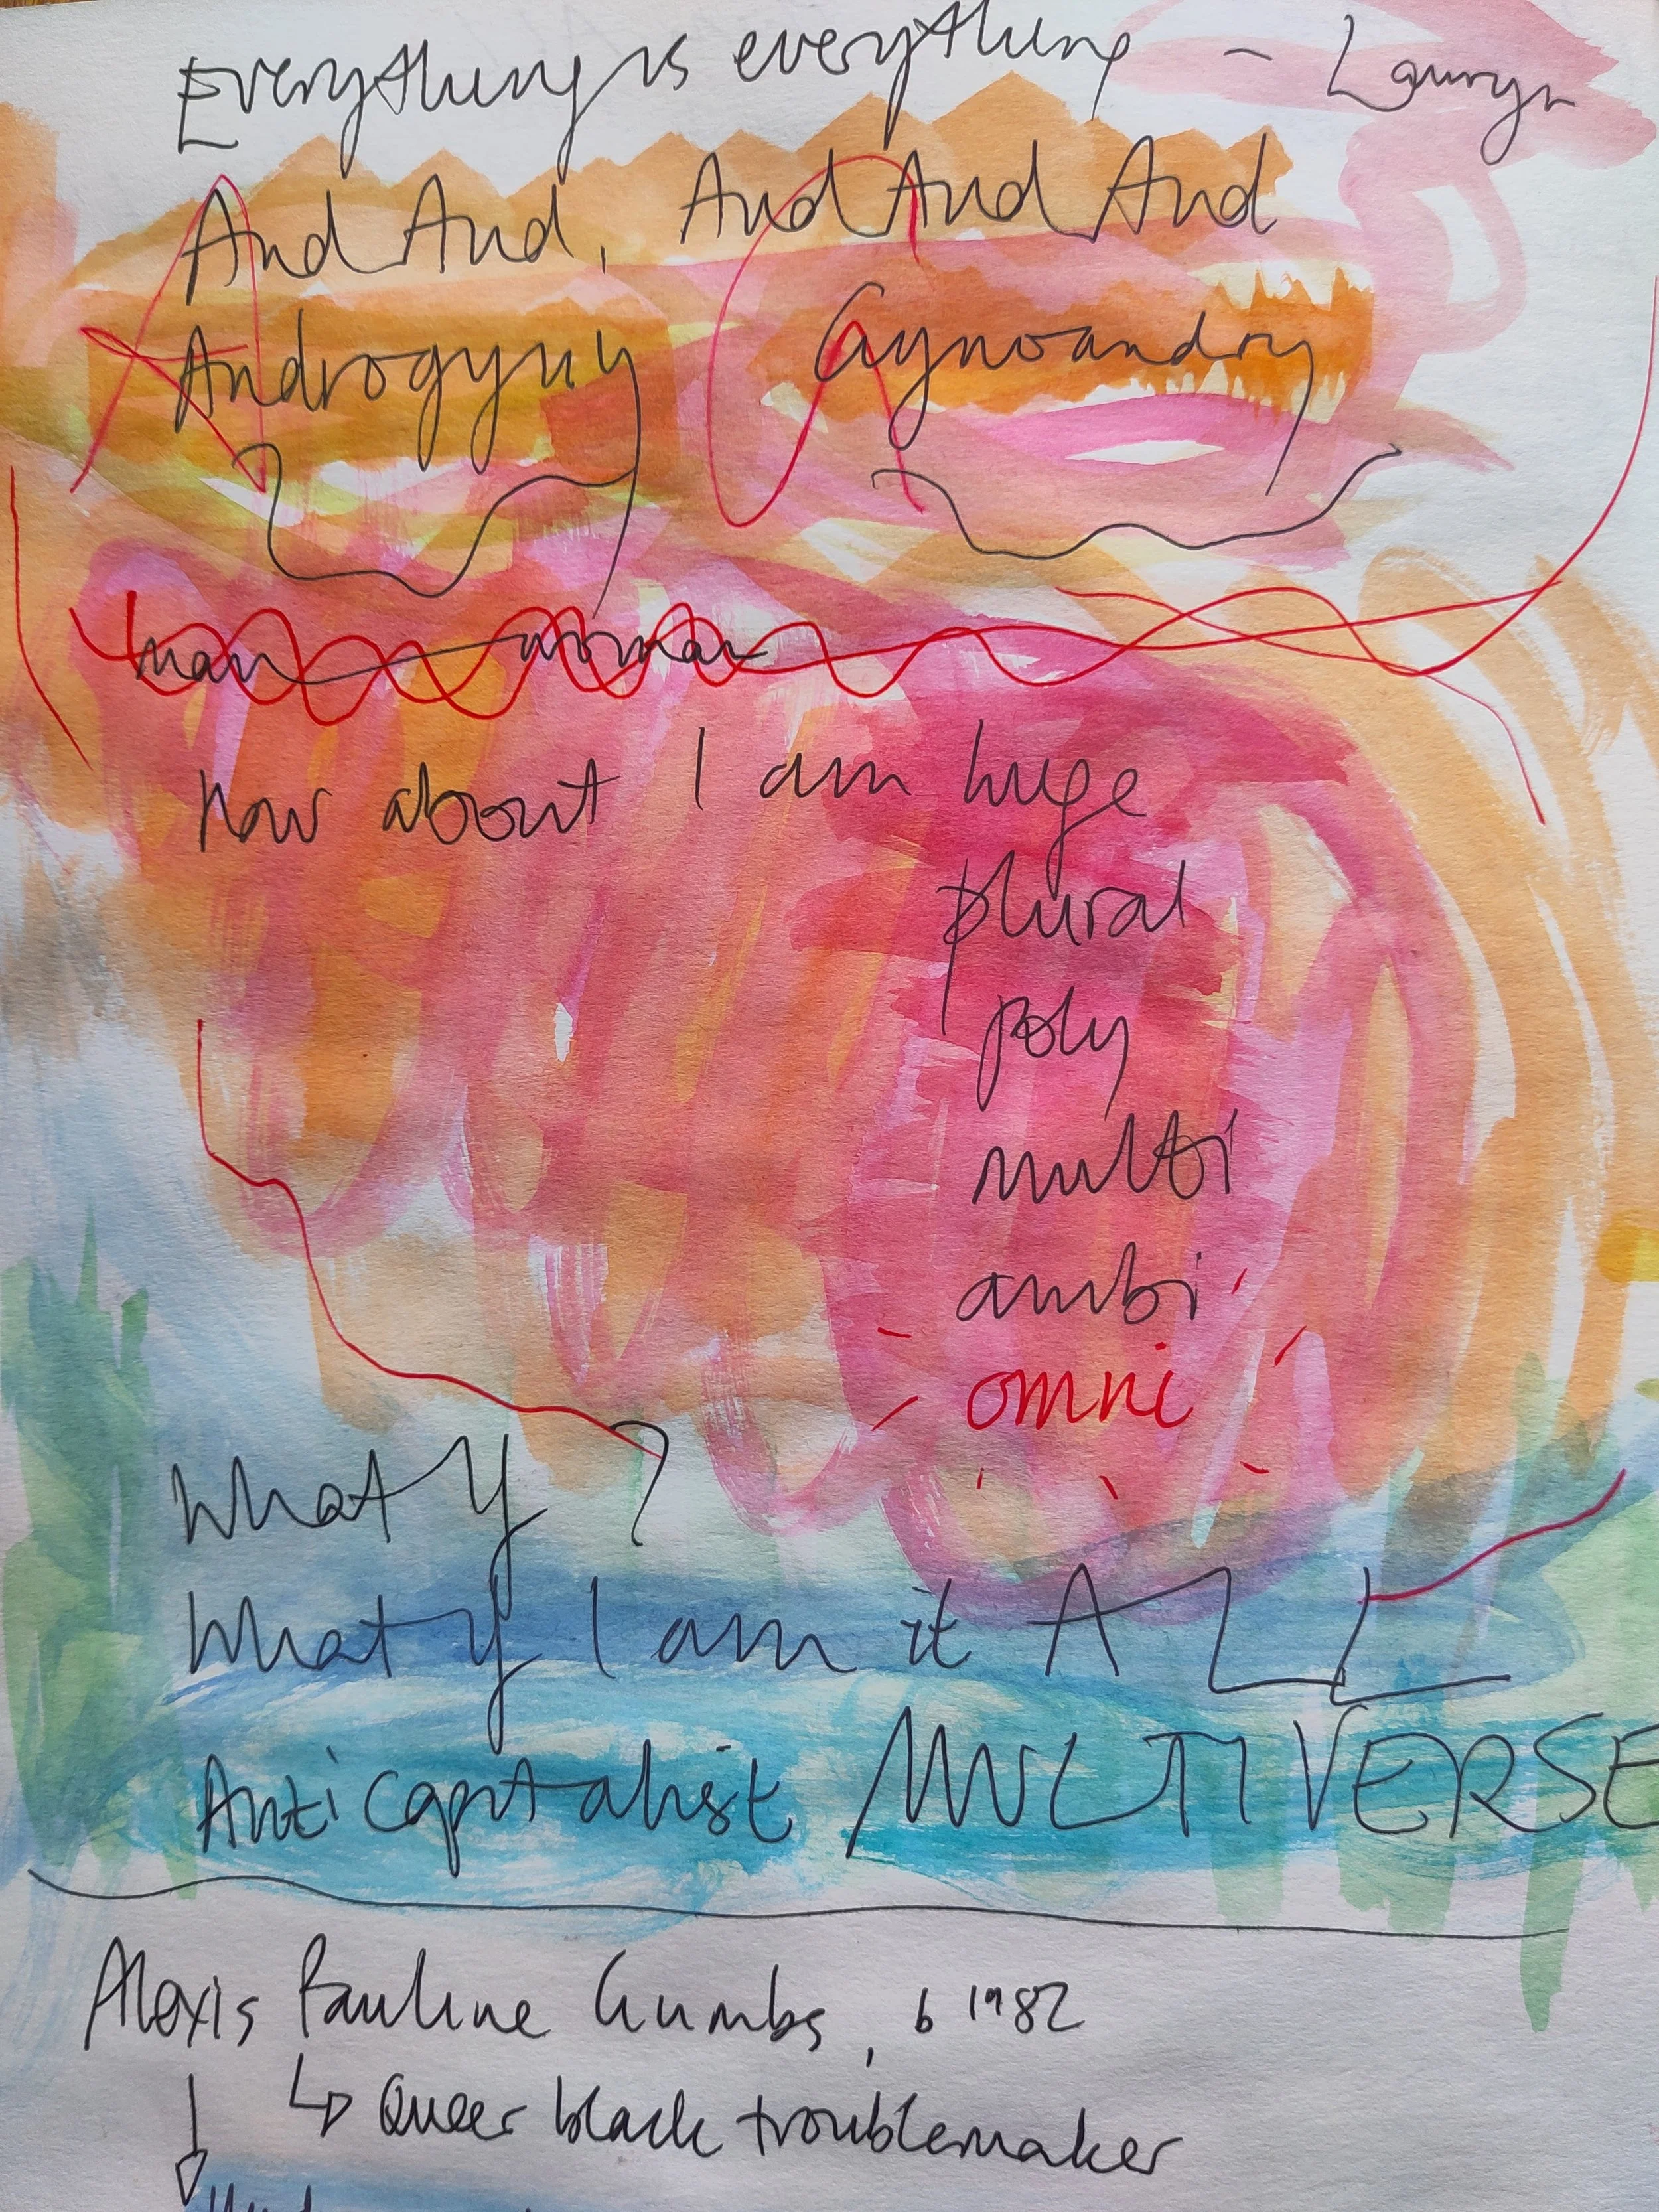 Everything is everything - Lauryn
And And, And And And
Androgyny Gynoandry
man woman
how about I am huge
plural
poly
multi
ambi
omni
What if ?
What if I am it ALL
Anticapitalist MULTIVERSE
Alexis Pauline Gumbs, b 1982
↳ Queer black troublemaker